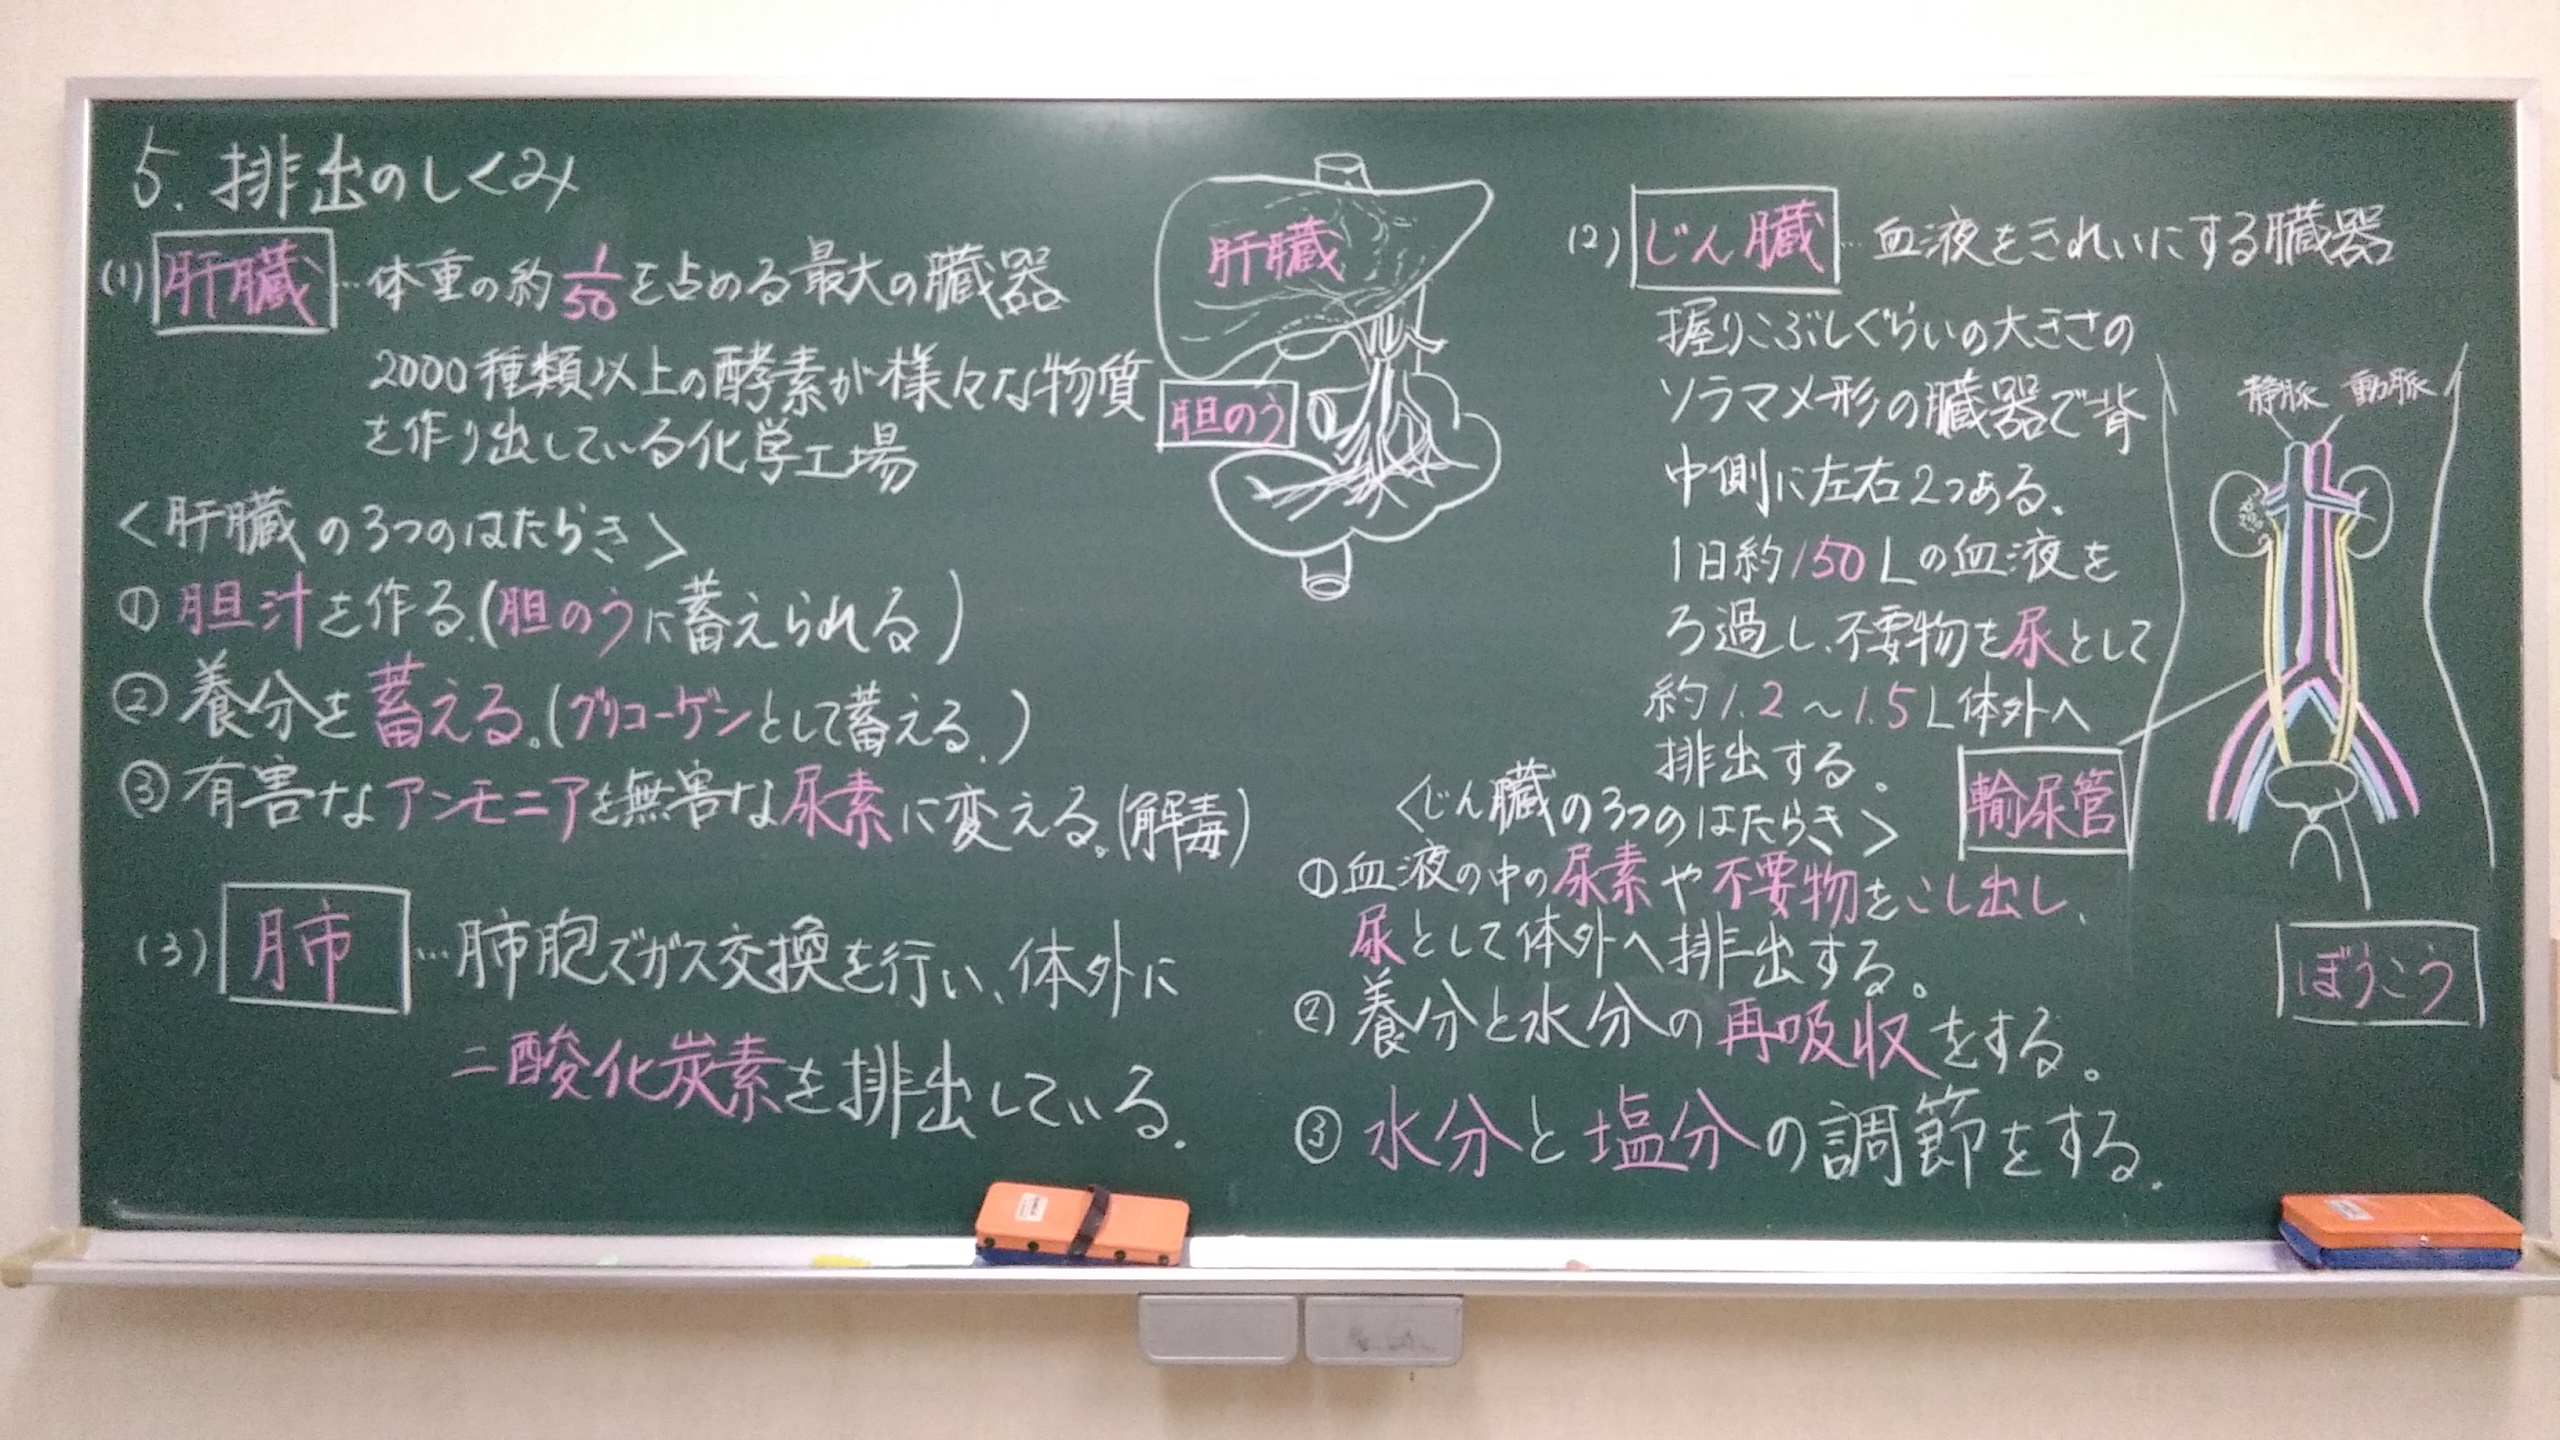 5. 排出のしくみ
(1) 肝臓 …体重の約1/50を占める最大の臓器
2000種類以上の酵素が様々な物質
を作り出している化学工場
<肝臓の3つのはたらき>
① 胆汁を作る。(胆のうに蓄えられる)
② 養分を蓄える。(グリコーゲンとして蓄える。)
③ 有害なアンモニアを無害な尿素に変える。(解毒)
(3) 肺 …肺胞でガス交換を行い、体外に
二酸化炭素を排出している。
肝臓
胆のう
(2) じん臓 …血液をきれいにする臓器
握りこぶしぐらいの大きさの
ソラマメ形の臓器で背
中側に左右2つある。
1日約150Lの血液を
ろ過し、不要物を尿として
約1.2~1.5L体外へ
排出する。
<じん臓の3つのはたらき>
①血液の中の尿素や不要物をこし出し、
尿として体外へ排出する。
② 養分と水分の再吸収をする。
③ 水分と塩分の調節をする。
静脈 動脈
輸尿管
ぼうこう